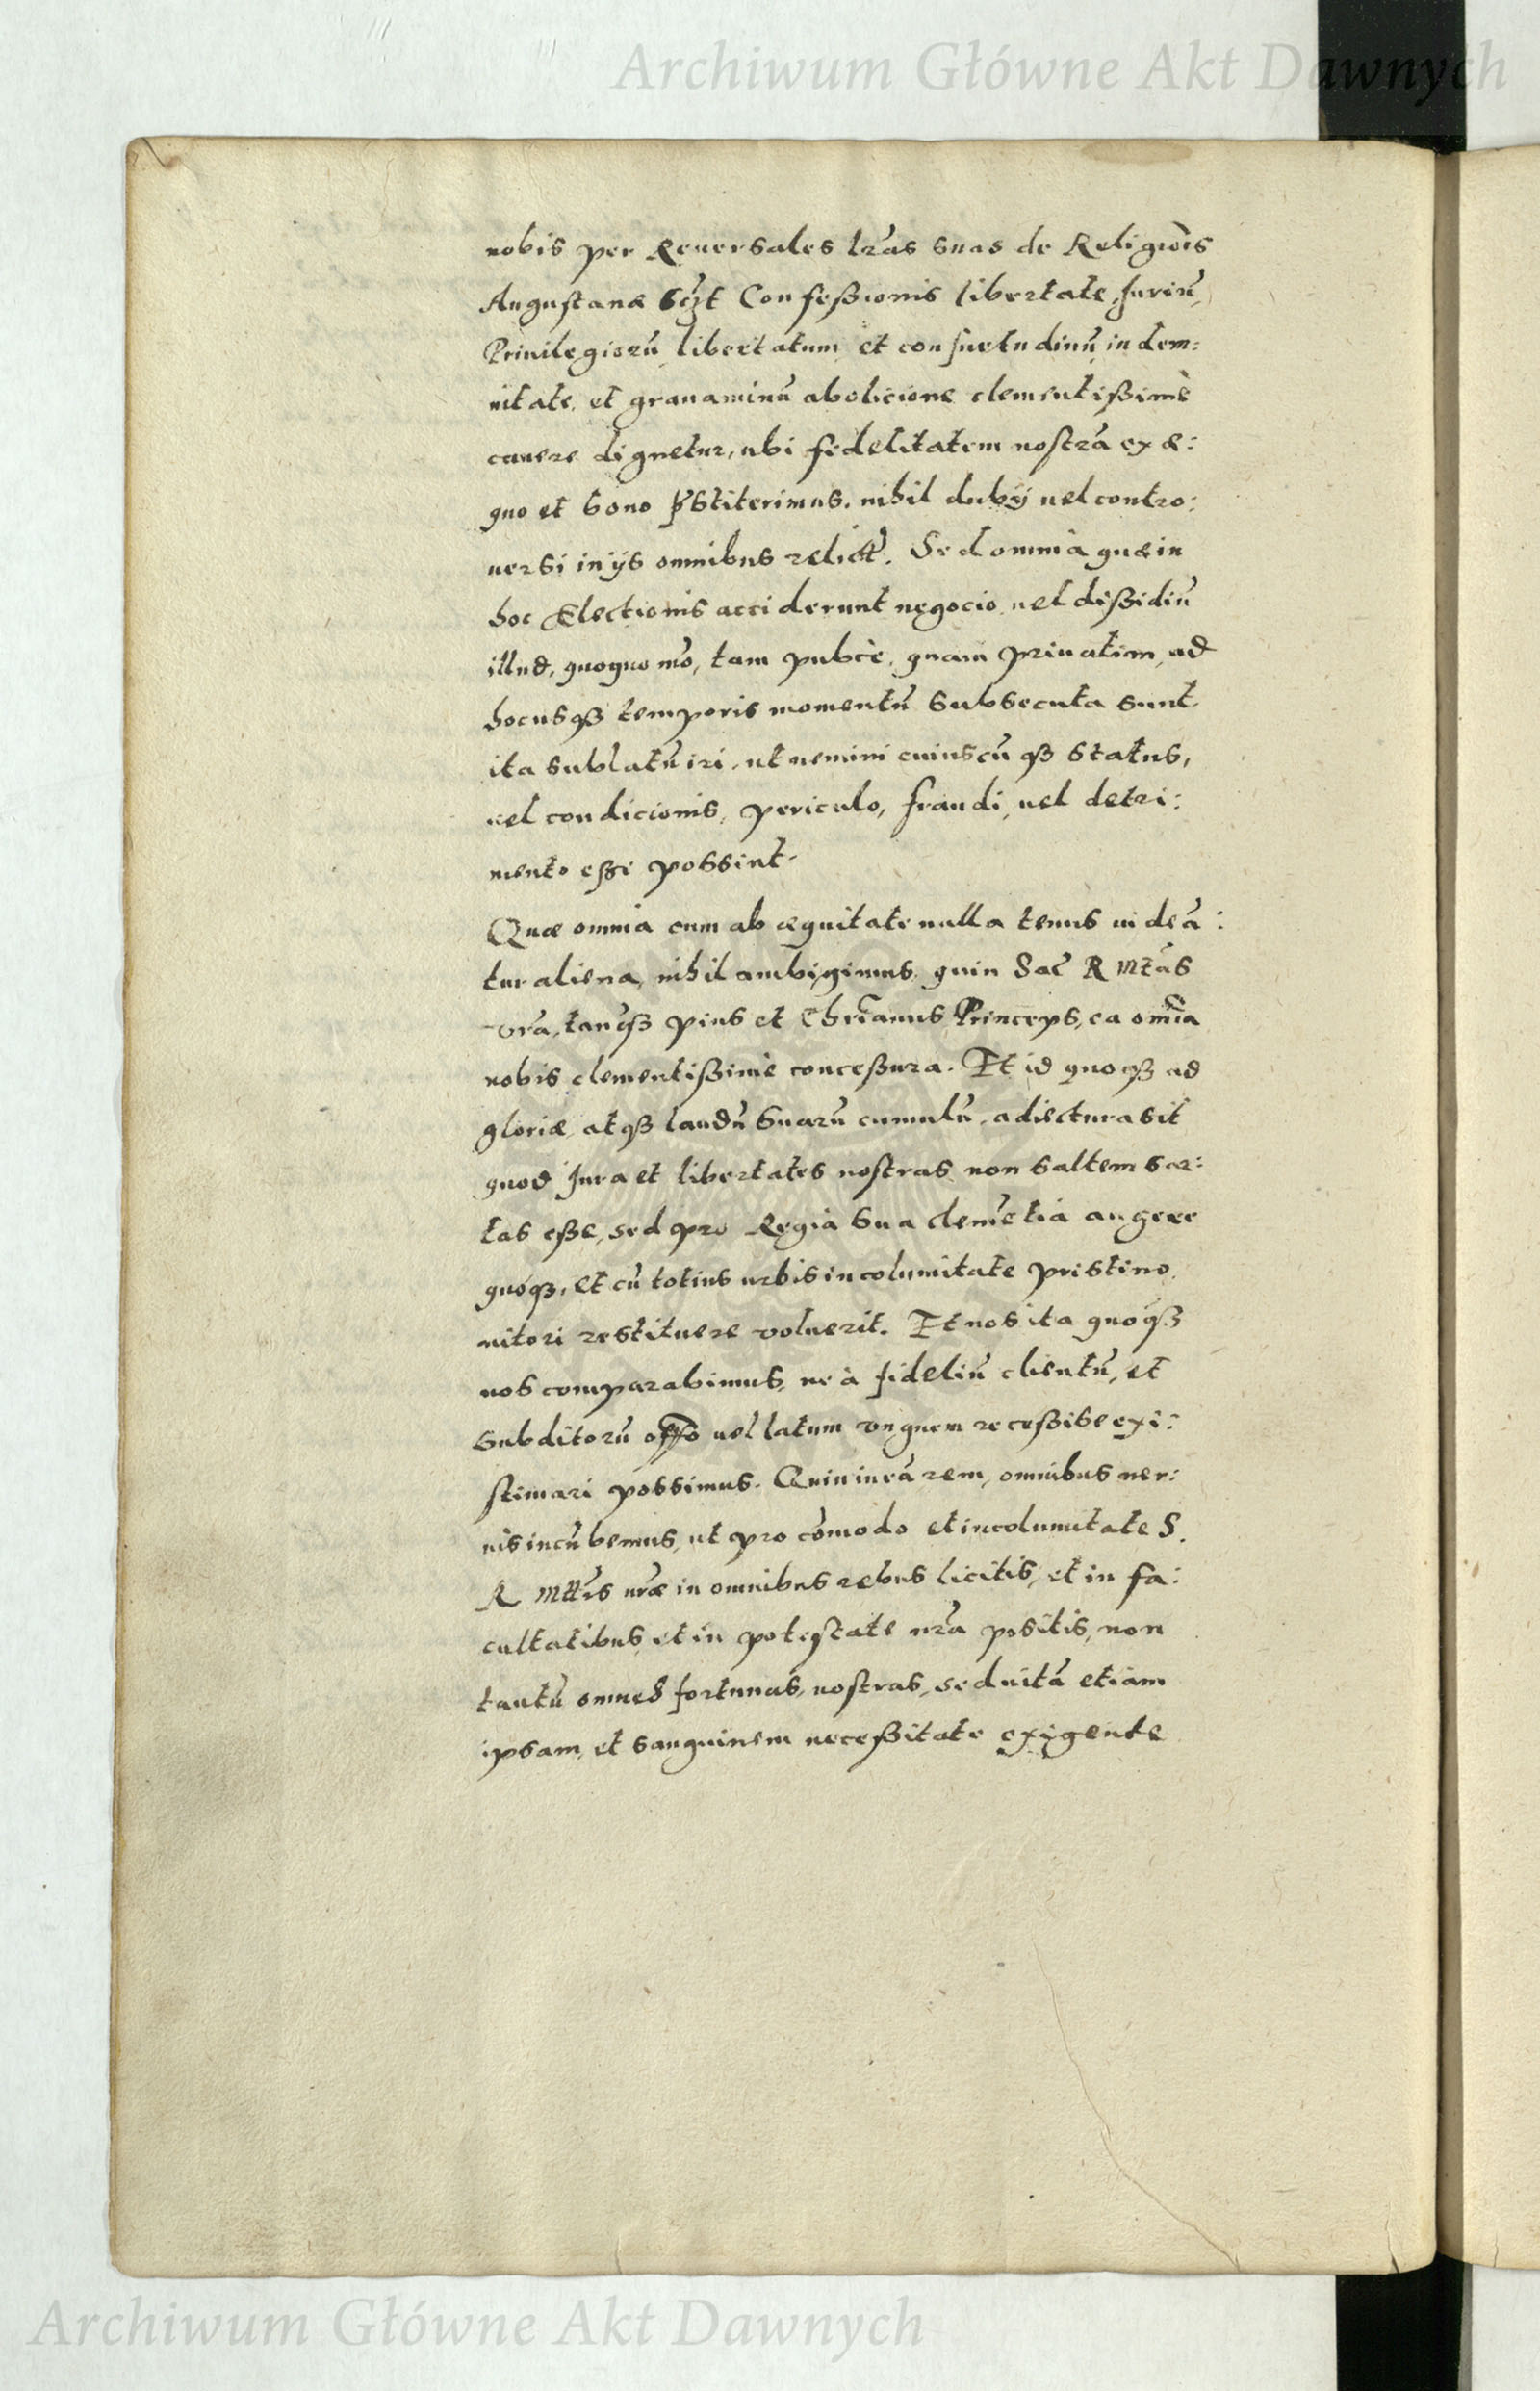 Archiwum Główne Akt Dawnych
nobis per Reuersales lr̃as suas de Religiõis
Augustanæ Confeßionis libertate, Juriũ,
Priuilegiorũ, libertatum et consuetudinũ, indem:
nitate, et grauaminũ abolicione clementißimè
cauere dignetur, ubi fidelitatem nostrã ex æ:
quo et bono p̃stiterimus, nihil dubij uel contro:
uersi in ijs omnibus relict̃. Sed omnia quæ in
hoc Electionis acciderunt negocio, uel dißidiũ
illud, quoquo mõ, tam pubcè, quam priuatim, ad
hocusqȝ temporis momentũ subsecuta sunt
ita sublatũ iri, ut nemini cuiuscũqȝ status,
uel condicionis, periculo, fraudi, uel detri:
mento eße possint.
Quæ omnia cum ab æquitate nulla tenus uideã:
tur aliena, nihil ambigimus, quin Sac̃ R Mt̃as
vr̃a, tanq̃ȝ pius et Chrĩanus Princeps, ea om̃ia
nobis clementißimè conceßura. Et id quoqȝ ad
gloriæ atqȝ laudũ suarũ cumulũ, adiectura sit
quod Jura et libertates nostras non saltem sar:
tas eße, sed pro Regia sua clemẽtia augere
quoqȝ, et cũ totius urbis incolumitate pristino
nitori restituere voluerit. Et nos ita quoqȝ
nos comparabimus, ne à fideliũ clientũ, et
subditorũ offõ uel latum vnguem receßiße exi:
stimari possimus. Quin in eã rem, omnibus ner:
uis incũbemus, ut pro cõmodo et incolumitate S.
R Mttĩs uræ in omnibus rebus licitis, et in fa:
cultatibus et in potestate nr̃a positis, non
tantũ omnes fortunas nostras, sed uitã etiam
ipsam, et sanguinem neceßitate exigente
Archiwum Główne Akt Dawnych